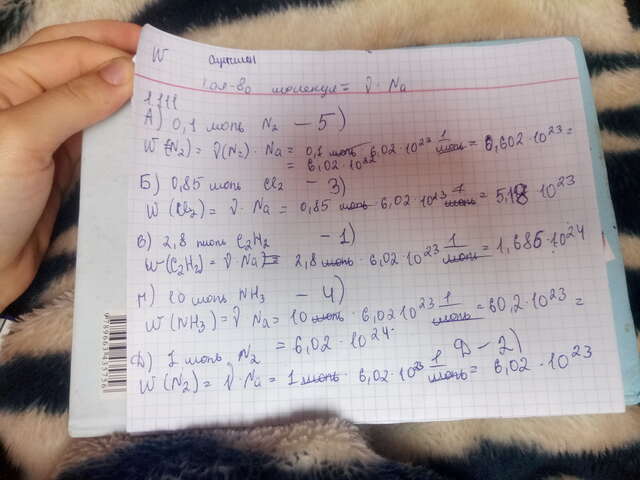 W
кол-во молекул = ν · Na
1.111
А) 0,1 моль N₂ — 5)
W (N₂) = ν(N₂) · Na = 0,1 моль · 6,02 · 10²³ 1/моль = 0,602 · 10²³ =
= 6,02 · 10²²
Б) 0,85 моль Cl₂ — 3)
W (Cl₂) = ν · Na = 0,85 моль · 6,02 · 10²³ 1/моль = 5,18 · 10²³
В) 2,8 моль C₂H₂ — 1)
W(C₂H₂) = ν · Na = 2,8 моль · 6,02 · 10²³ 1/моль = 1,685 · 10²⁴
Г) 10 моль NH₃ — 4)
W (NH₃) = ν Na = 10 моль · 6,02 10²³ 1/моль = 60,2 · 10²³ =
= 6,02 · 10²⁴
Д) 1 моль N₂ Д — 2)
W (N₂) = ν · Na = 1 моль · 6,02 · 10²³ 1/моль = 6,02 · 10²³